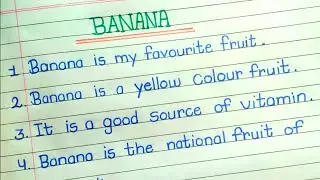 BANANA
1. Banana is my favourite fruit.
2. Banana is a yellow colour fruit.
3. It is a good source of vitamin.
4. Banana is the national fruit of